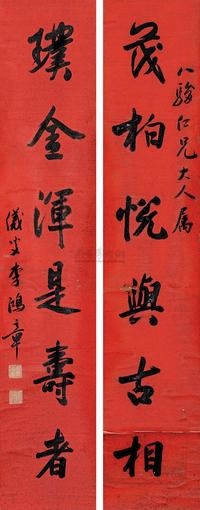 八駿仁兄大人属
茂柏悦與古相
璞金渾是壽者
儀叟李鴻章